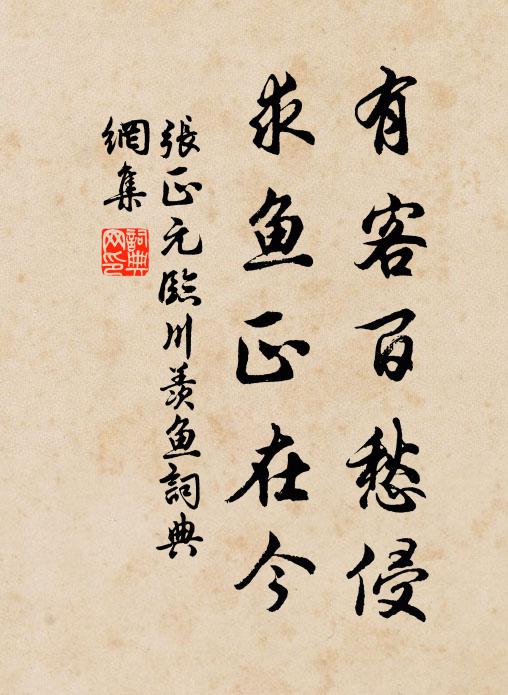 有客百愁侵
求鱼正在今
張正元臨川羨鱼詞典
網集
詞典
网印